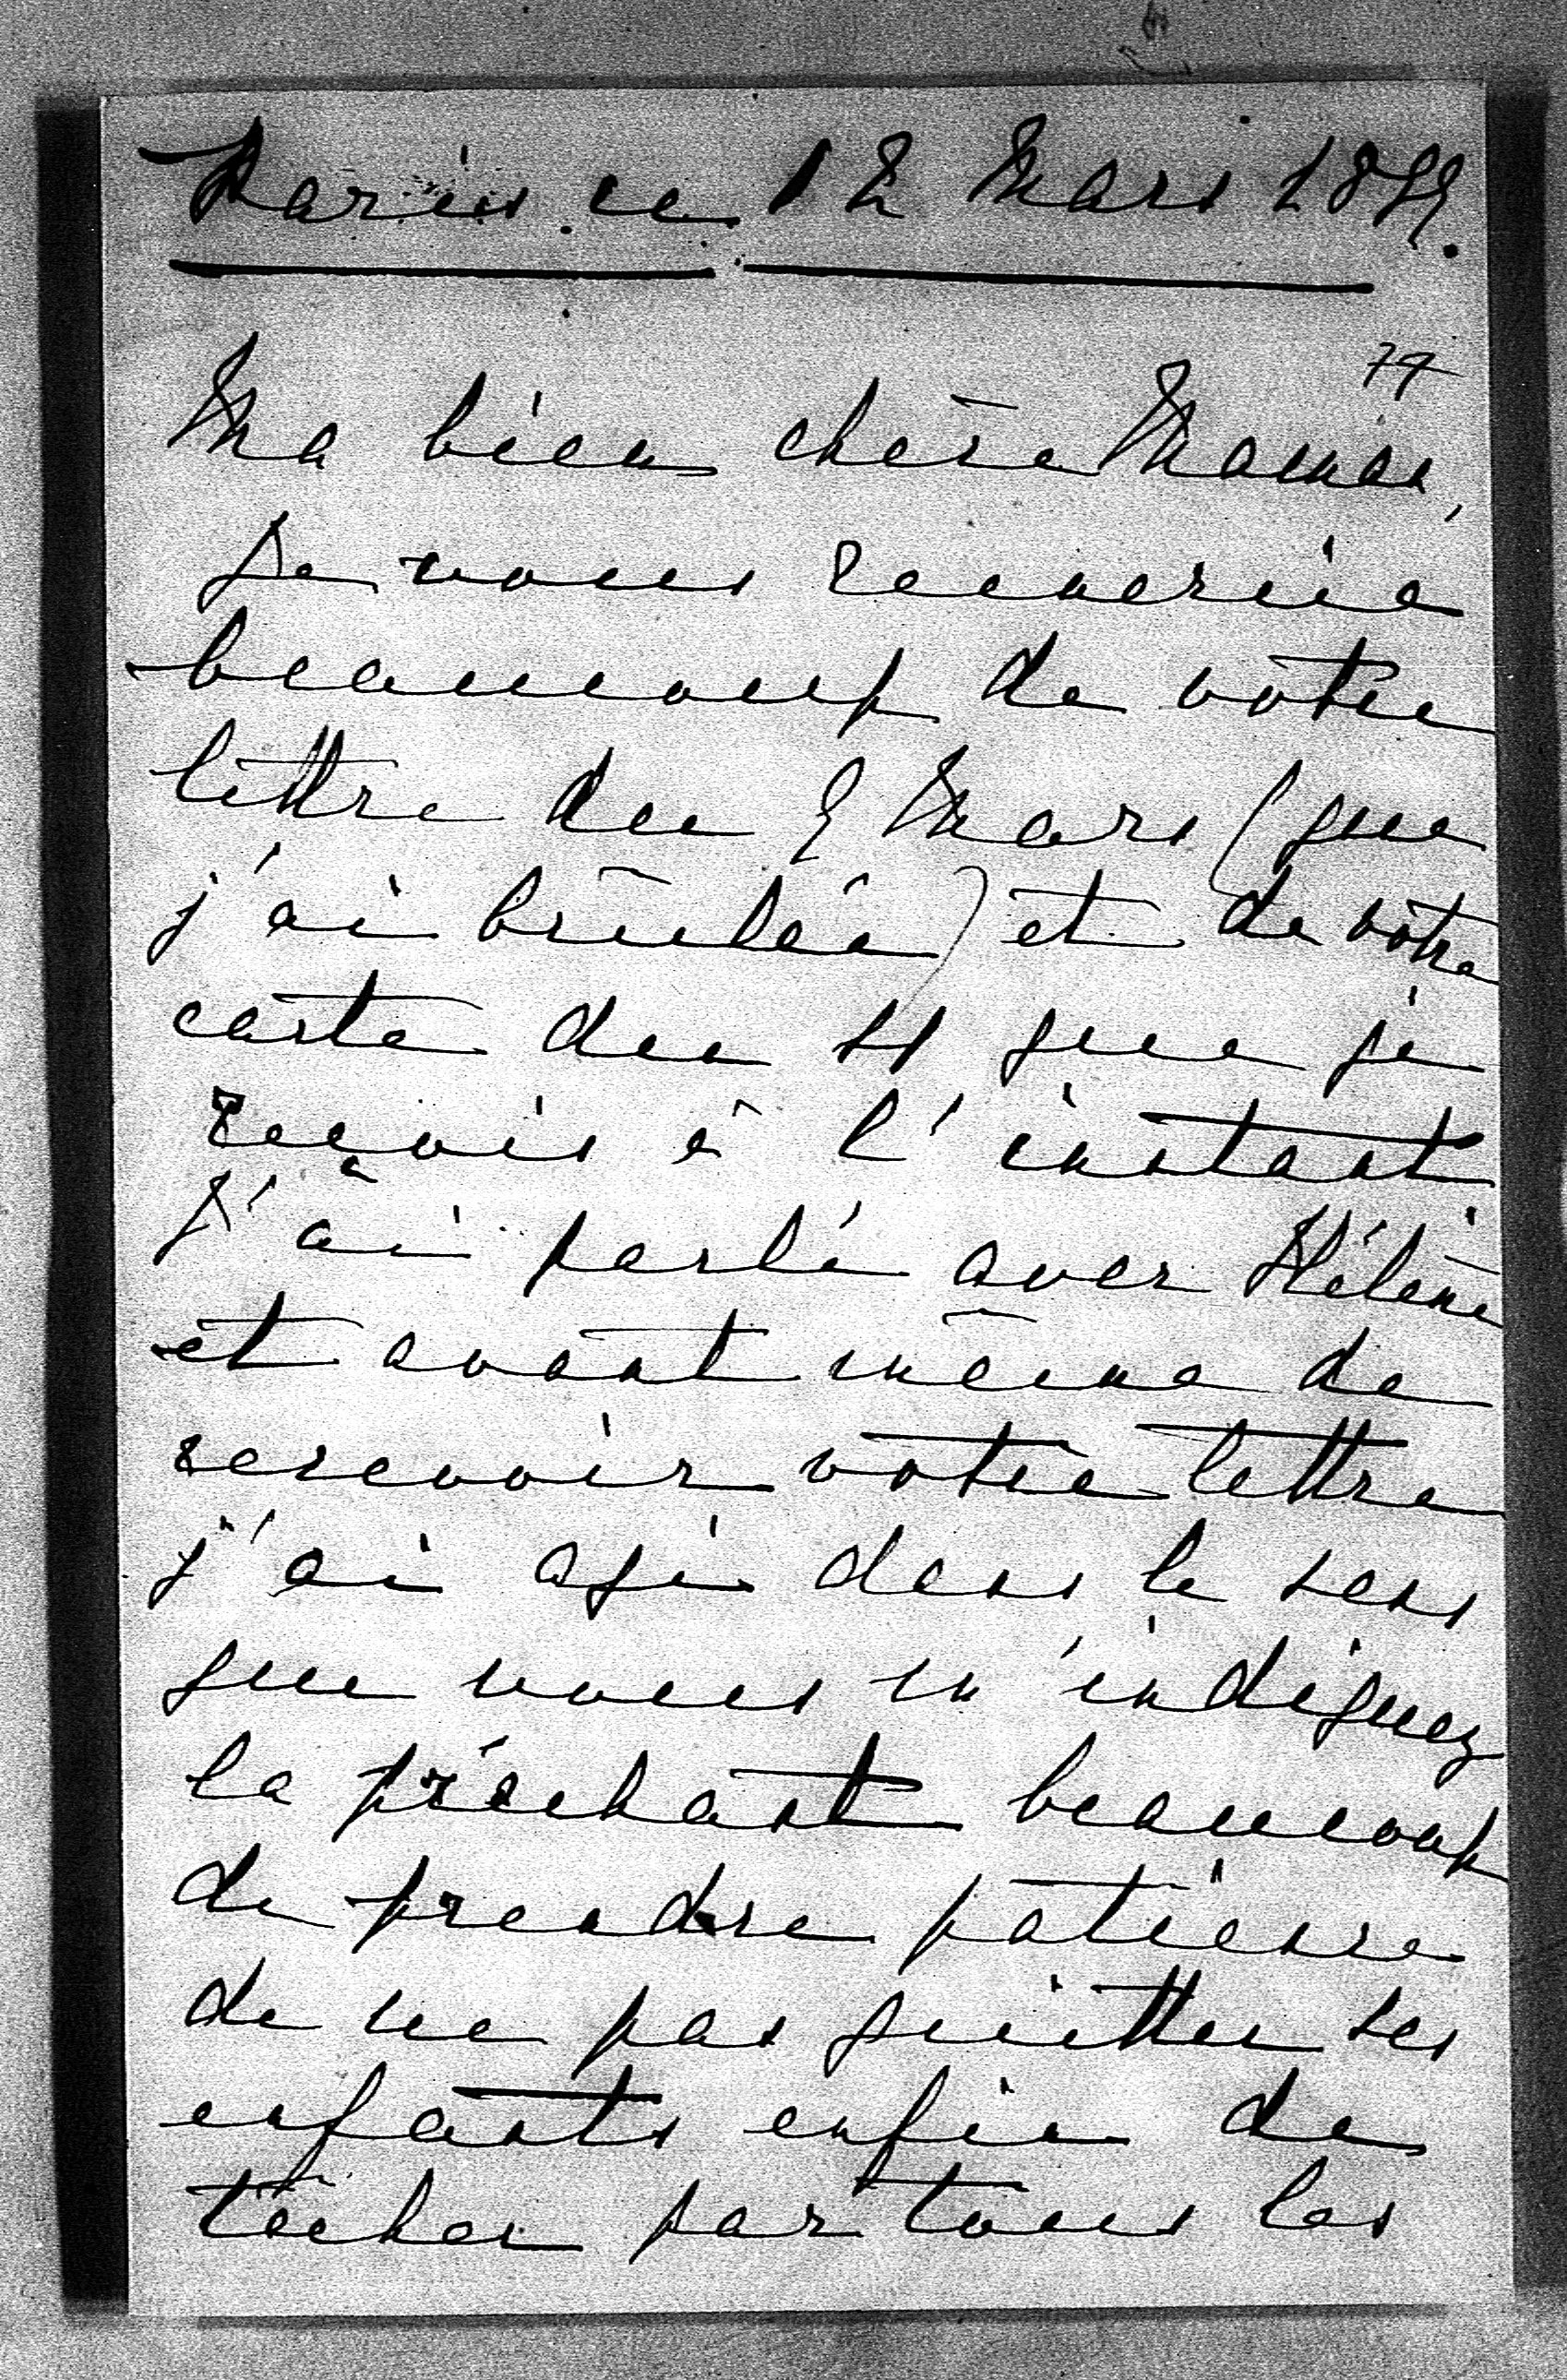 Paris ce 12 Mars 1899.
79
Ma bien chère Maman,
Je vous remercie
beaucoup de votre
lettre du 9 Mars (que
j'ai brûlée) et de votre
carte du 11 que je
reçois à l'instant
J'ai parlé avec Hélène
et avant même de
recevoir votre lettre
j'ai agi dans le sens
que vous m'indiquez
la prêchant beaucoup
de prendre patience
de ne pas quitter ses
enfants enfin de
tâcher par tous les